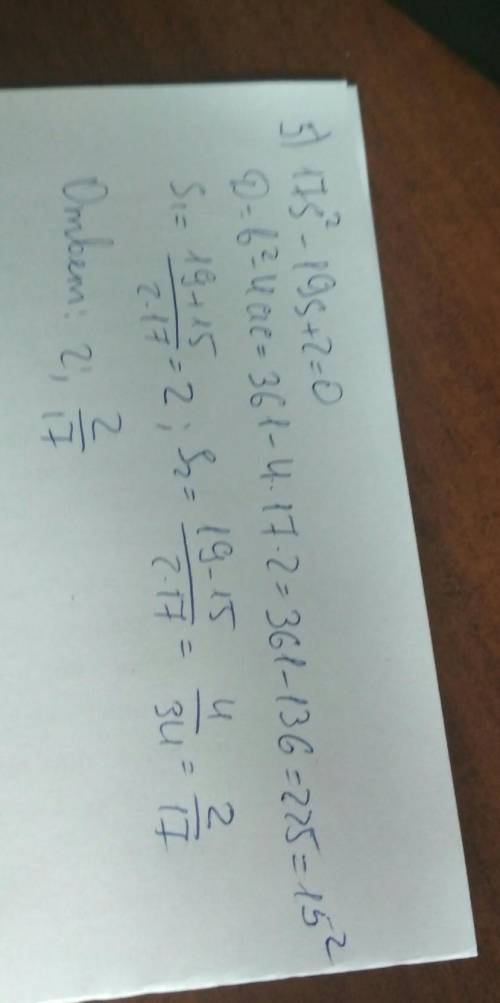 5) 17s² - 19s + 2 = 0
D = b² - 4ac = 361 - 4·17·2 = 361 - 136 = 225 = 15²
s₁ = (19+15)/(2·17) = 2; s₂ = (19-15)/(2·17) = 4/34 = 2/17
Ответ: 2; 2/17